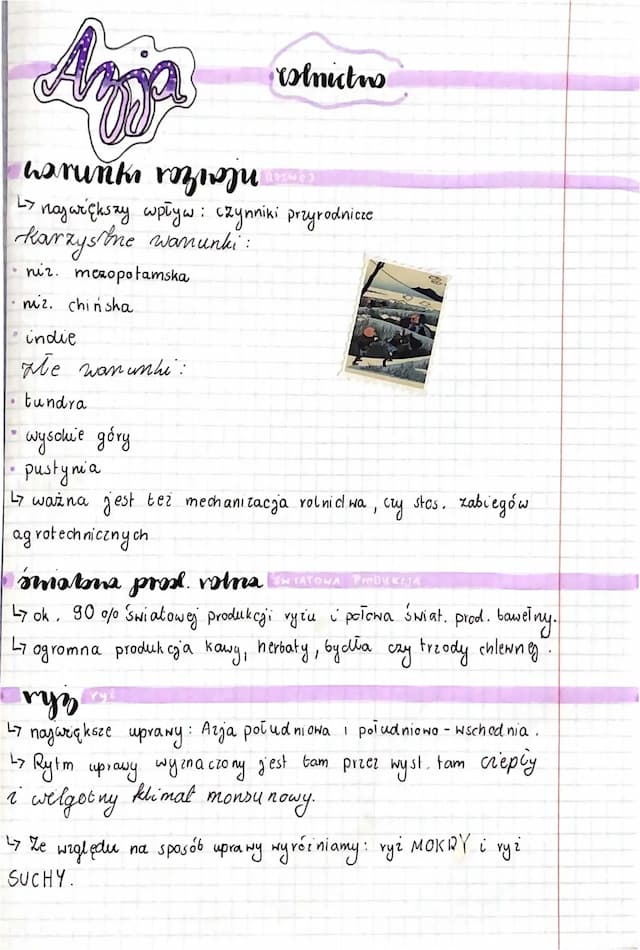 Azja
rolnictwo
warunki rozwoju rozwój
↳ największy wpływ: czynniki przyrodnicze
korzystne warunki:
• niz. mezopotamska
• niz. chińska
• indie
złe warunki:
• tundra
• wysokie góry
• pustynia
↳ ważna jest też mechanizacja rolnictwa, czy stos. zabiegów
agrotechnicznych
światowa prod. rolna ŚWIATOWA PRODUKCJA
↳ ok. 90 % światowej produkcji ryżu i połowa świat. prod. bawełny.
↳ ogromna produkcja kawy, herbaty, bydła czy trzody chlewnej.
ryż ryż
↳ największe uprawy: Azja południowa i południowo-wschodnia.
↳ Rytm uprawy wyznaczony jest tam przez wyst. tam ciepły
i wilgotny klimat monsunowy.
↳ Ze względu na sposób uprawy wyróżniamy: ryż MOKRY i ryż
SUCHY.